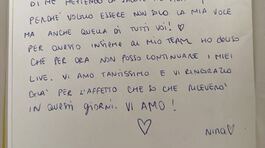 DI ME METTENDO LA
PERCHÉ VOGLIO ESSERE NON SOLO LA MIA VOCE
MA ANCHE QUELLA DI TUTTI VOI! ♡
PER QUESTO INSIEME AL MIO TEAM HO DECISO
CHE PER ORA NON POSSO CONTINUARE I MIEI
LIVE. VI AMO TANTISSIMO E VI RINGRAZIO
GIÀ PER L'AFFETTO CHE SO CHE RICEVERÒ
IN QUESTI GIORNI. VI AMO!
♡
Nina♡